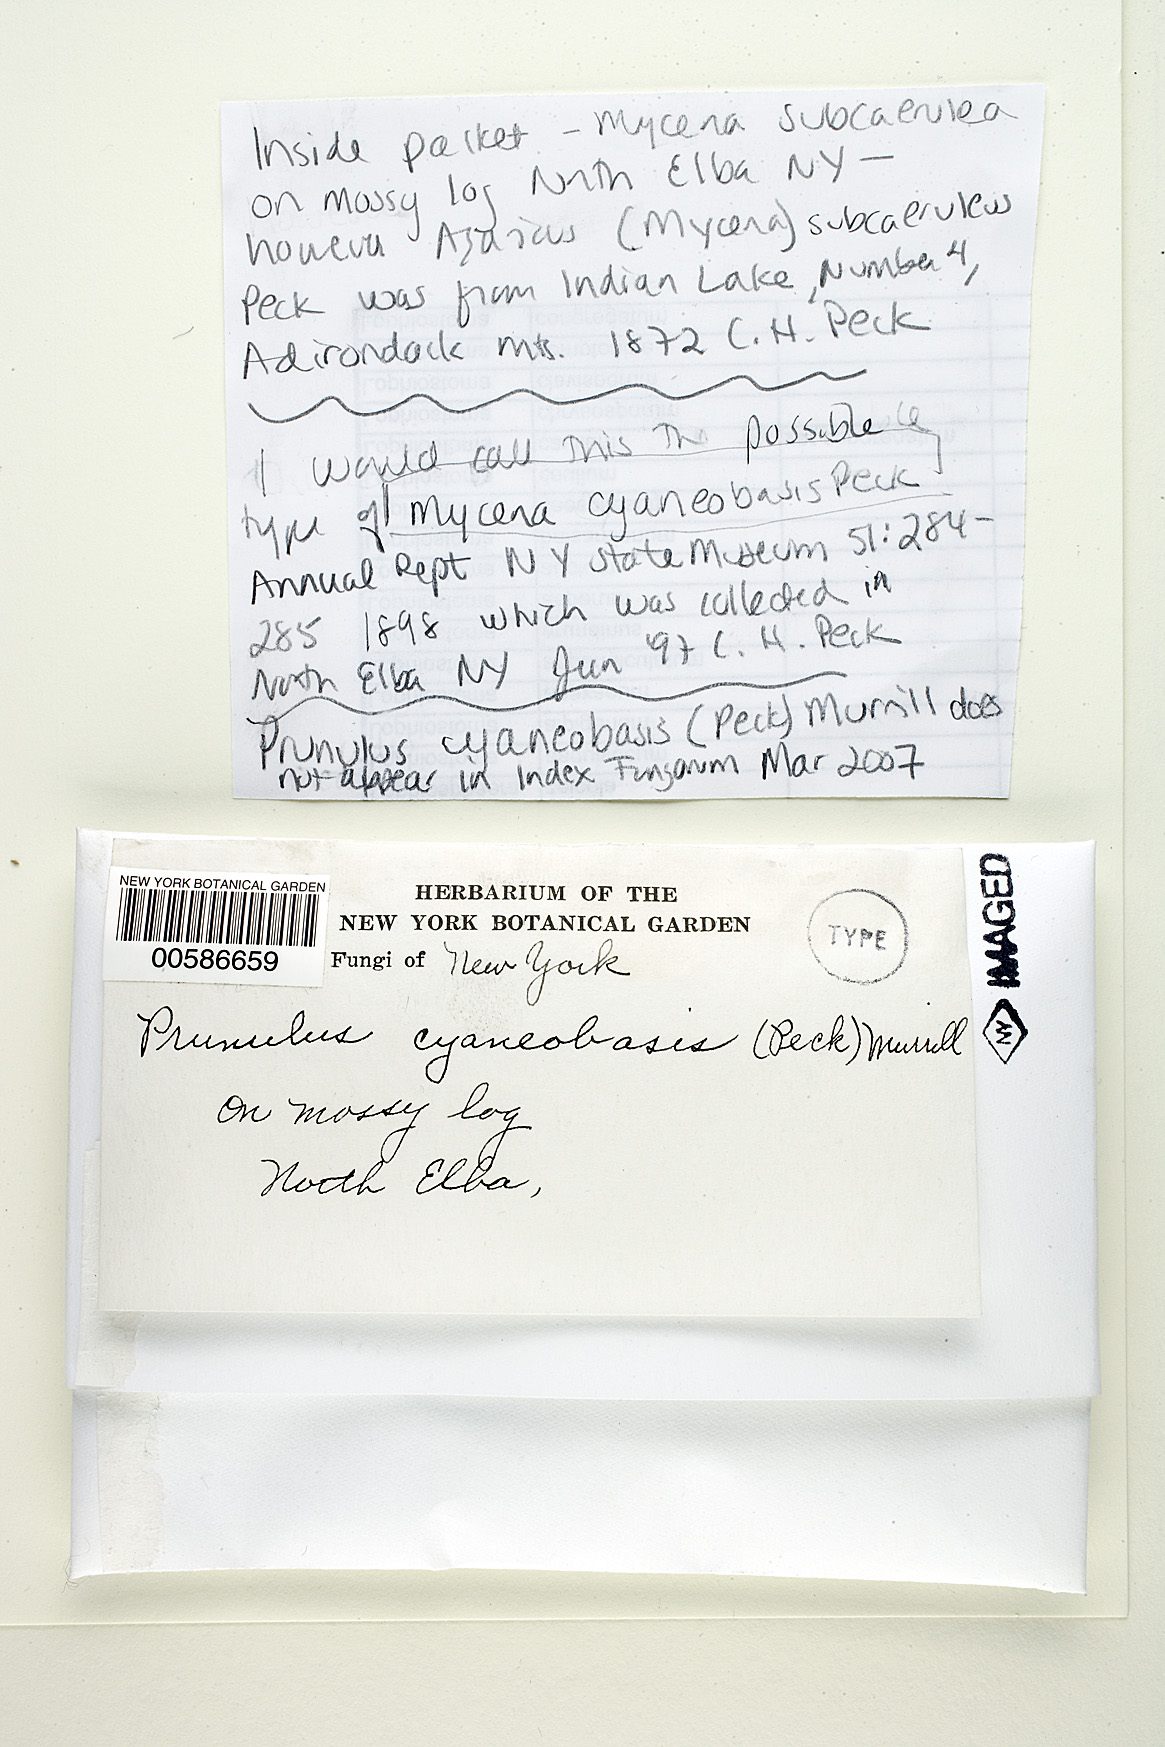 Inside packet - Mycena subcaerulea
on mossy log North Elba NY —
however Agaricus (Mycena) subcaeruleus
Peck was from Indian Lake, Number 4,
Adirondack mts. 1872 C. H. Peck
I would call this the possible
type of Mycena cyaneobasis Peck
Annual Rept NY State Museum 51: 284-
285 1898 which was collected in
North Elba NY Jun '97 C. H. Peck
Prunulus cyaneobasis (Peck) Murrill does
not appear in Index Fungorum Mar 2007
NEW YORK BOTANICAL GARDEN
00586659
HERBARIUM OF THE
NEW YORK BOTANICAL GARDEN
Fungi of New York
TYPE
IMAGED
NY
Prunulus cyaneobasis (Peck) Murrill
On mossy log
North Elba,